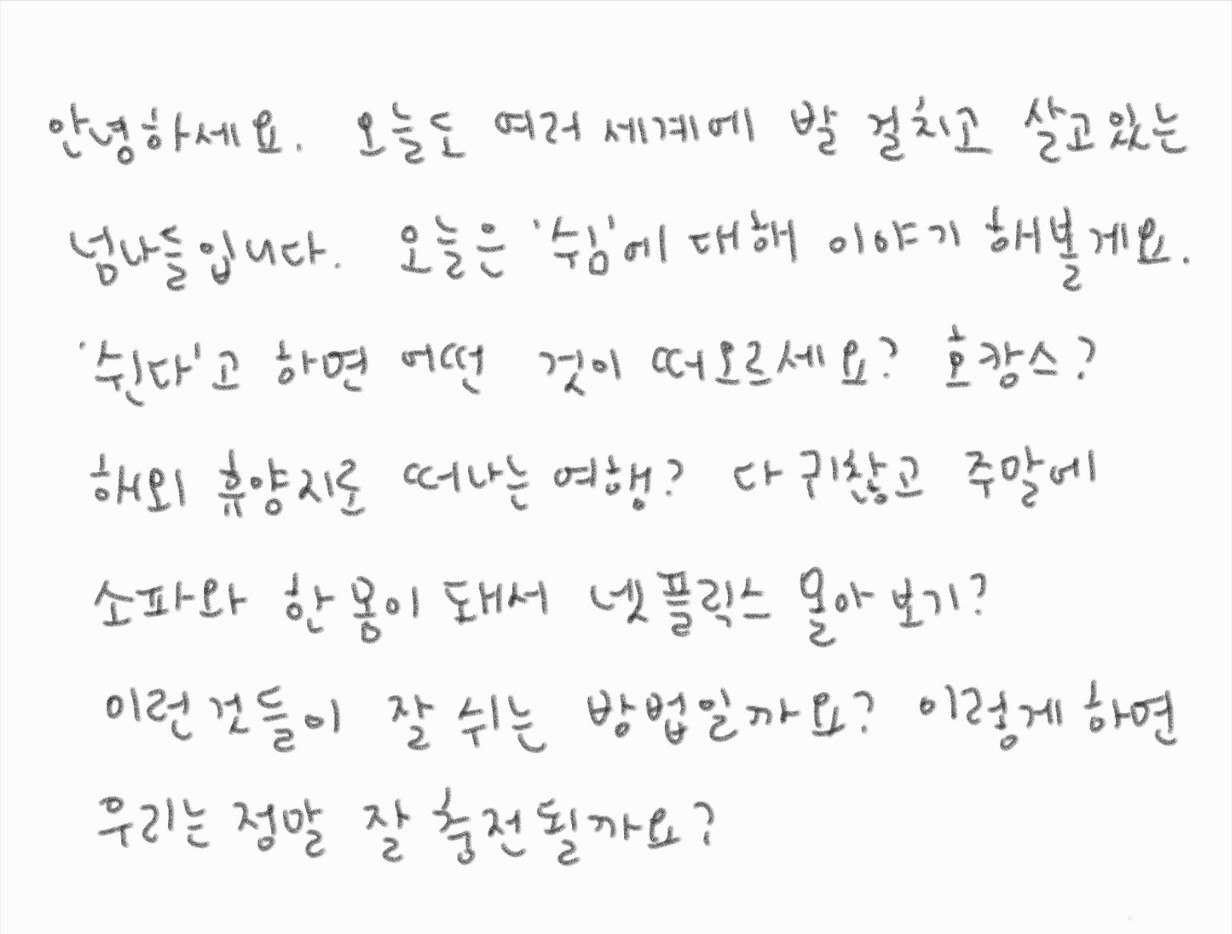 안녕하세요. 오늘도 여러 세계에 발 걸치고 살고있는
넘나들입니다. 오늘은 '쉼'에 대해 이야기 해볼게요.
'쉰다'고 하면 어떤 것이 떠오르세요? 호캉스?
해외 휴양지로 떠나는 여행? 다 귀찮고 주말에
소파와 한 몸이 돼서 넷플릭스 몰아 보기?
이런 것들이 잘 쉬는 방법일까요? 이렇게 하면
우리는 정말 잘 충전될까요?